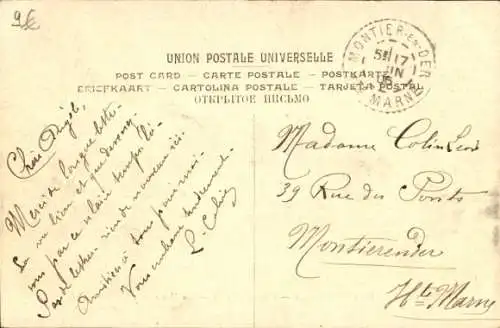 9€
UNION POSTALE UNIVERSELLE
POST CARD - CARTE POSTALE - POSTKARTE
BRIEFKAART - CARTOLINA POSTALE - TARJETA POSTAL
ОТКРЫТОЕ ПИСЬМО
MONTIER-EN-DER
17
JIN
05
MARNE
Chère
Merci de longue lettre.
va bien et que
vous par ce temps
Pas de lettre rien de nouveau ici.
Amitiés à tous pour moi
Vous embrasse tendrement
L. Colin
Madame Colin
39 Rue des Ponts
Montierender
Hte Marne